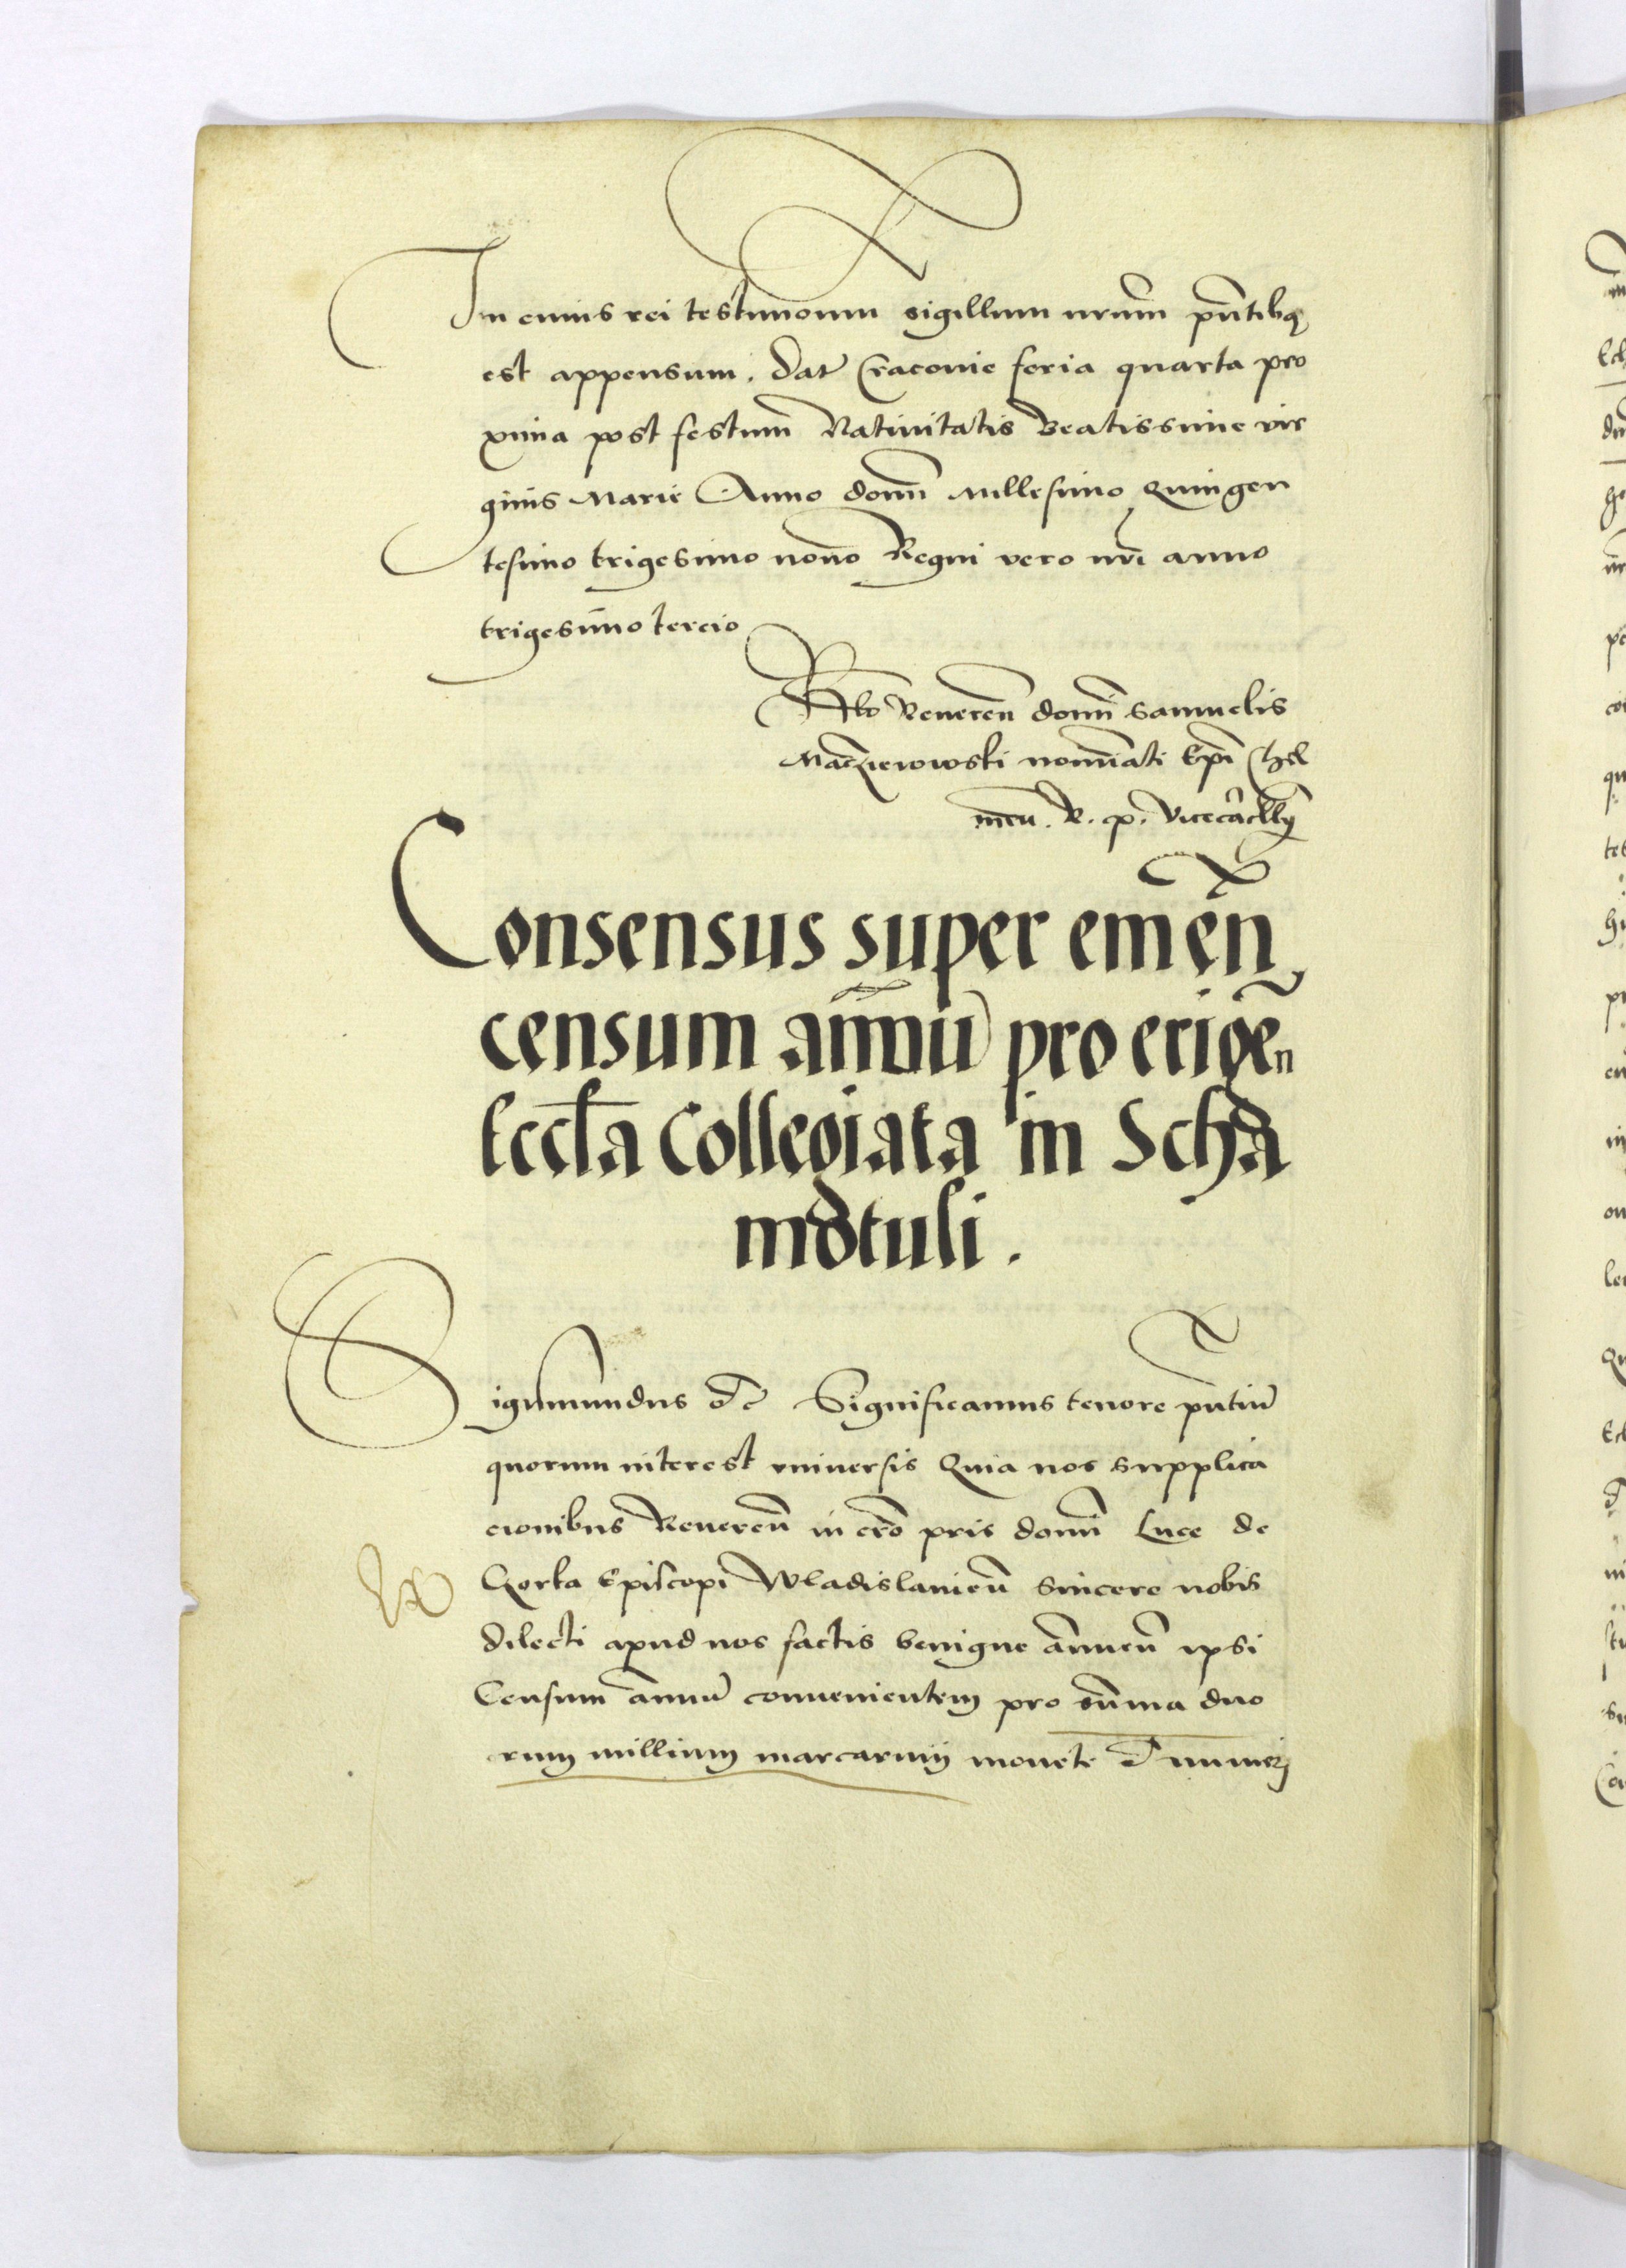 In cuius rei testimonium sigillum nrūm pn̄tibq
est appensum. Dat Cracovie feria quarta pro
xima post festum Nativitatis Beatissime vir
ginis Marie Anno domī Millesimo Quingen
tesimo trigesimo nono Regni vero nrī anno
trigesimo tercio
Rlo Reveren domī Samuelis
Maczieiowski nominati Ep̄i Chel
men. R. p. Vicecācllȳ
Consensus super emen̄
censum an̄nuū pro erigen
Eccl̄a Collegiata in Scha
motuli.
Sigismundus etc Significamus tenore pn̄tiū
quorum interest universis Quia nos supplica
cionibus Reveren̄ in cr̄o pris domī Luce de
Gorka Episcopi Wladislavien̄ sincere nobis
dilecti apud nos factis benigne an̄nuen̄ ipsi
Censum an̄nuū convenientem pro sum̄ma duo
rum millium marcarum monete et numeri